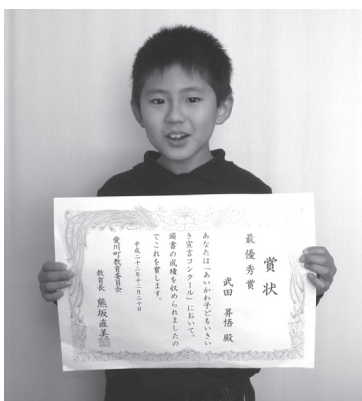 賞状
最優秀賞
武田 昇悟 殿
あなたは「あいかわ子どもいきい
き宣言コンクール」において、
頭書の成績を収められましたの
でこれを賞します。
平成二十二年十二月二十日
愛川町教育委員会
教育長 熊坂直美